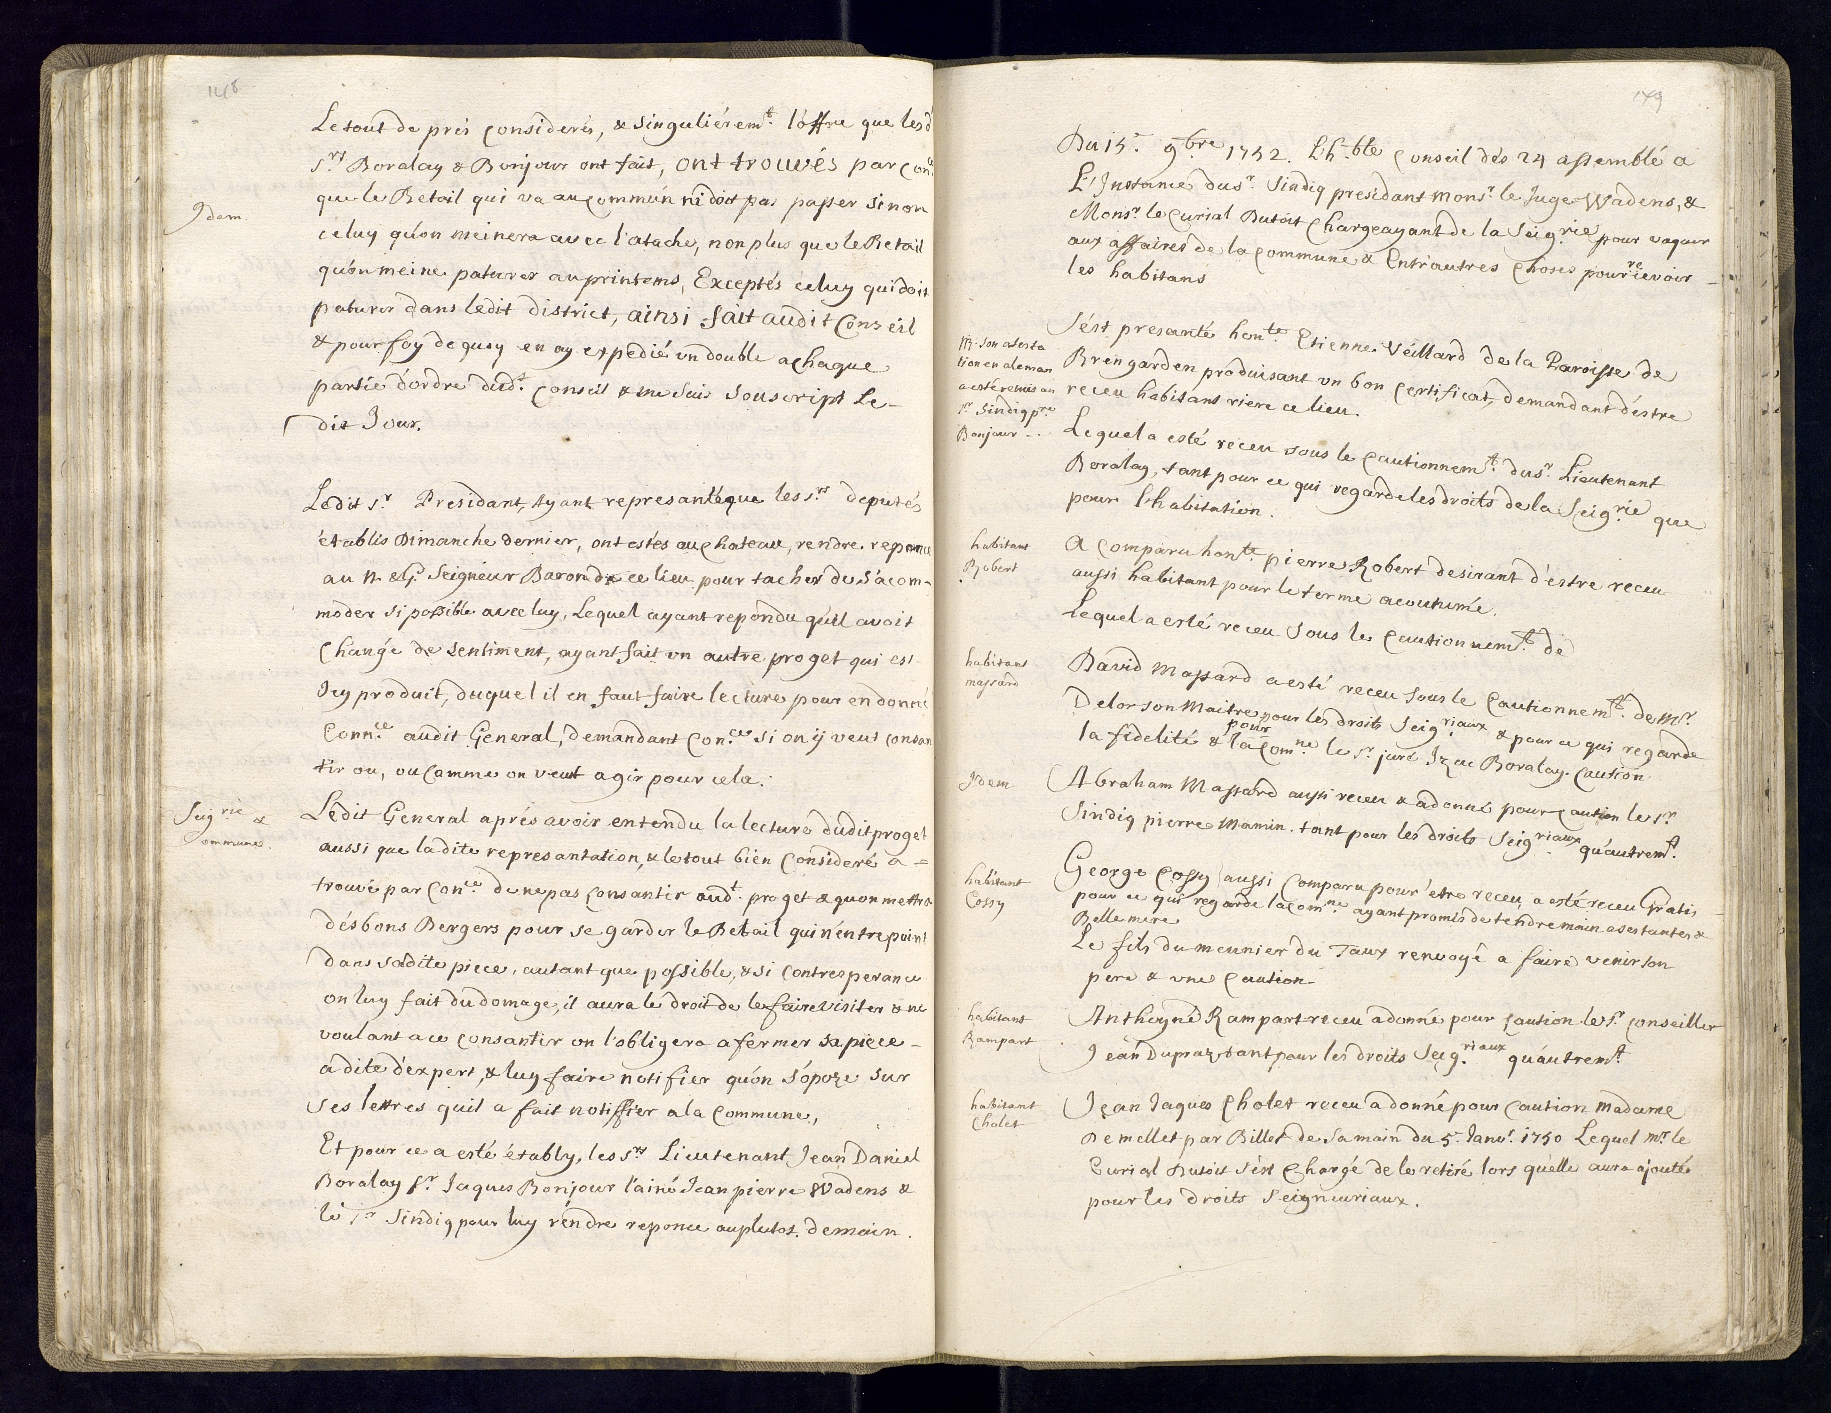 148
Le tout de prés considerés, & singuliérem.t l'offre que lesd
s.rs Boralay & Bonjour ont fait, ont trouvés par Con.ce
que le Betail qui va au commún nê doit pas passer sinon
Idem.
celuy qu'on meinera avec l'atache, non plus que le Betail
qu'on meine paturer au printems, Exceptés celuy qui doit
paturer dans ledit district, ainsi fait audit Conseil
& pour foy de quoy en ay expedié un double a chaque
partie d'ordre dud.t conseil & me suis souscript Le-
dit Jour.
Ledit s.r Presidant, Ayant represanté que les s.rs deputés
établis Dimanche dernier, ont estés au chateau, rendre reponce
au n. & g. Seigneur Baron de ce lieu pour tacher de s'acom-
moder si possible avec luy, Lequel ayant repondu qu'il avoit
Changé de sentiment, ayant fait un autre proget qui est
Icy produit, duquel il en faut faire lecture pour en donné
Conn.ce audit General, demandant Con.ce si on y veut consan
tir ou, ou Comme on veut agir pour cela:
Seig.rie &
Commune.
Ledit General aprés avoir entendu la lecture dudit proget
aussi que ladite represantation, & le tout bien consideré a =
trouvé par Con.ce de ne pas consantir aud.t proget & quon mettra
dés bons Bergers pour se garder le Betail qui n'éntre point
Dans sadite piece, autant que possible, & si contresperance
on luy fait du domage, il aura le droit de le faire visiter & ne
voulant a ce consantir on l'obligera a férmer sa piece -
a dite d'expert, & luy faire notifier qu'on s'ópoze sur
ses lettres quil a fait notiffier a la Commune,
Et pour ce a esté étably, les s.rs Lieutenant Jean Daniel
Boralay s.r Jaques Bonjour l'ainé Jean pierre Wadens &
lé s.r Sindiq pour luy réndre reponce au plutot. demain.
149
Du 15.e 9bre 1752. Lh.ble conseil dés 24 assemblé a
L'Instance du s.r Sindiq presidant mons.r le Juge Wadens, &
Mons.r le Curial Dutoit Chargeayant de la Seig.rie pour vaquer
aux affaires de la commune & Entr'autres choses pour recevoir
les habitans
S'ést presanté hon.te Etienne Véillard de la Paroisse de
Brengarden produisant un bon certificat, demandant d'éstre
receu habitant riere ce lieu.
son atesta
tion en aleman
a esté remis au
s.r Sindiq p.re
Bonjour - . .
Lequel a esté receu sous le cautionnem.t du s.r Lieutenant
Boralay, tant pour ce qui regarde les droits de la Seig.rie que
pour l'habitation.
habitant
Robert
A comparu hon.te pierre Robert desirant d'estre receu
aussi habitant pour le terme acoutumé.
Lequel a esté receu sous le Cautionnem.t de
habitant
massard
David Massard a esté receu sous le Cautionnem.t de M.r
Delor son Maitre pour les droits Seig.riaux & pour ce qui regarde
la fidelité & pour la com.ne le s.r juré Izac Boralay. Caution
Idem
Abraham Massard aussi receu & a donné pour caution le s.r
Sindiq pierre Mamin. tant pour les droits Seig.riaux qu'autrem.t
habitant
Cossy
George Cossy aussi Comparu pour être receu, a esté receu Gratis
pour ce qui regarde la Com.ne ayant promis de tendre main a ses tantes &
Belle mere
Le fils du meunier du Taux renvoyé a faire venir son
pere & une Caution
habitant
Rampart
Anthoyne Rampart receu a donné pour Caution le s.r conseiller
Jean Dupraz tant pour les droits Seig.riaux qu'autrem.t
habitant
Cholet
Jean Jaques Cholet receu a donné pour Caution Madame
De mellet par Billet de Sa main du 5.e Janv.r 1750 Lequel m.r le
Curial Dutoit s'ést Chargé de le retiré lors qu'elle aura ajouté
pour les droits Seigneuriaux.